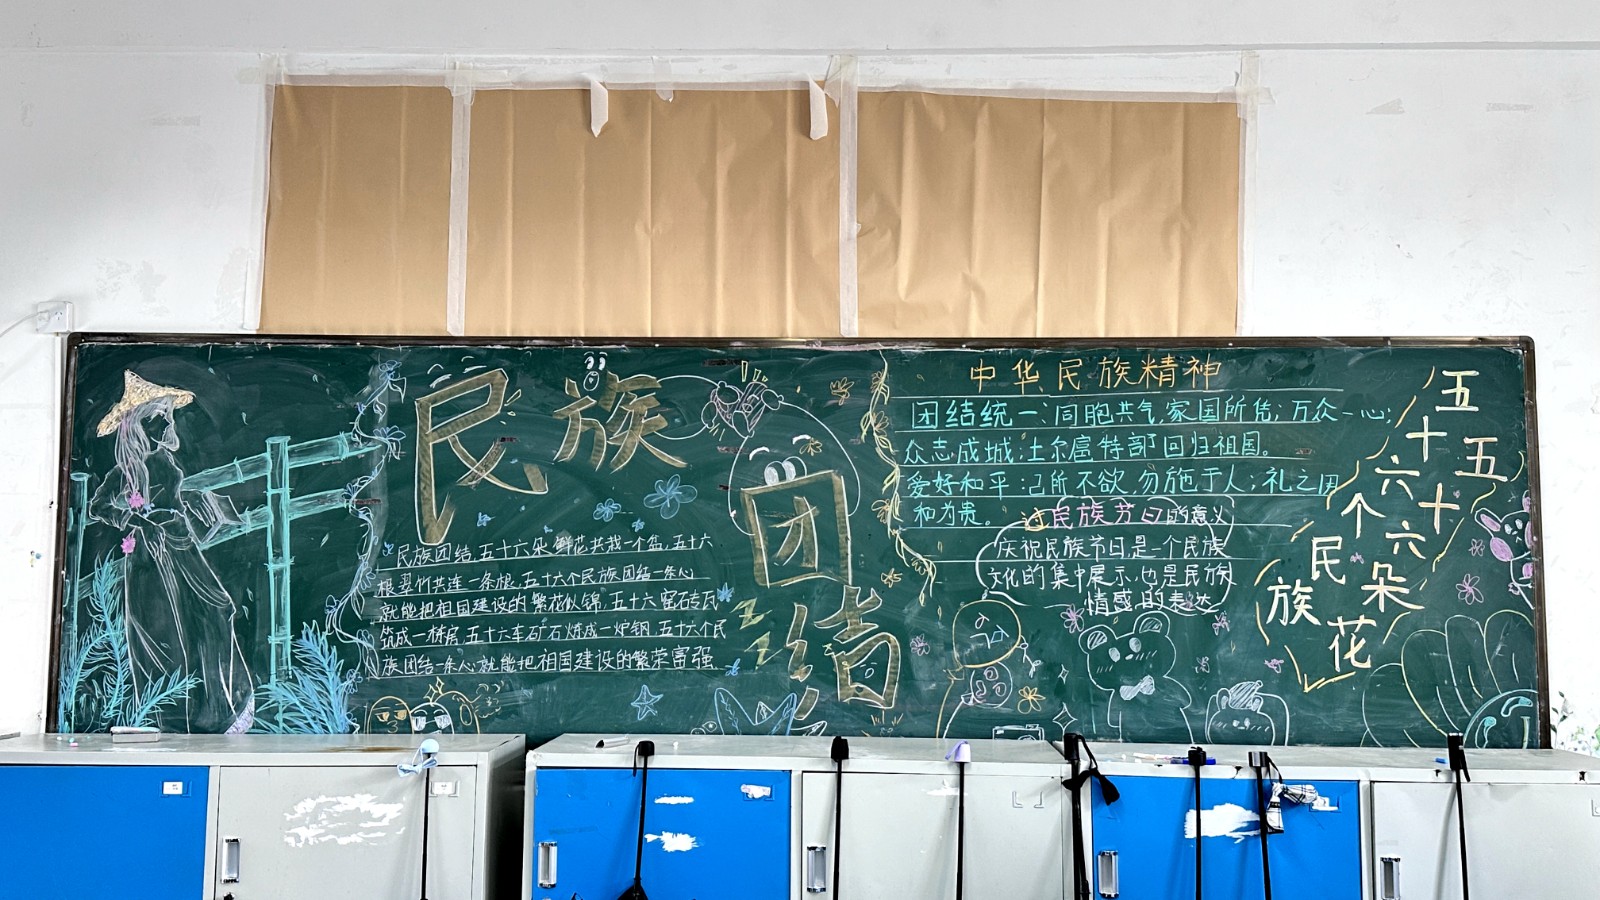 民族
团结
民族团结,五十六朵鲜花共栽一个盆,五十六
根翠竹共连一条根,五十六个民族团结一条心
就能把祖国建设的繁花似锦,五十六窑石专瓦
筑成一栋房,五十六车矿石炼成一炉钢,五十六个民
族团结一条心就能把祖国建设的繁荣富强.
中华民族精神
团结统一:同胞共气,家国所凭;万众一心;
众志成城;土尔扈特部回归祖国。
爱好和平:己所不欲,勿施于人;礼之用
和为贵。
过民族节日的意义
庆祝民族节日,是一个民族
文化的集中展示,也是民族
情感的表达
五十六个民族
五十六朵花